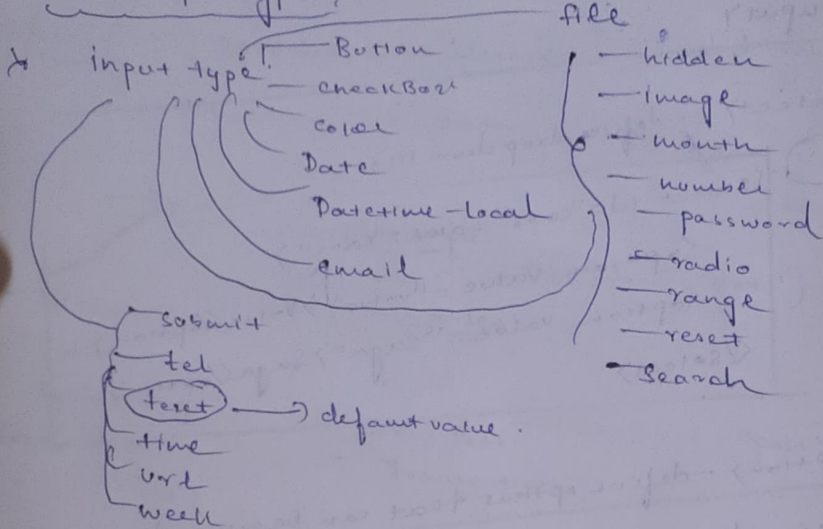 file
input type
Button
checkBox
color
Date
Datetime-local
email
hidden
image
month
number
password
radio
range
reset
search
submit
tel
text → default value.
time
url
week